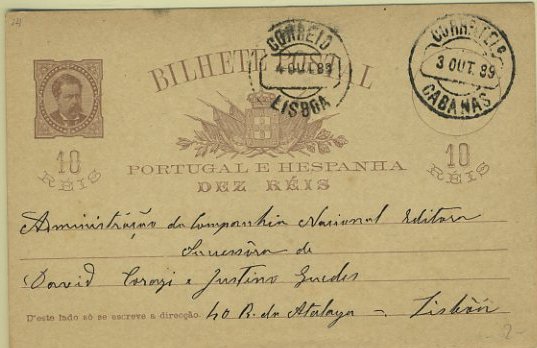 CORREIO
4 OUT. 89
LISBOA
CORREIO E
3 OUT. 89
CABANAS
BILHETE POSTAL
10
RÉIS
PORTUGAL E HESPANHA
DEZ RÉIS
10
RÉIS
Administração da Companhia Nacional Editora
Successôra de
David Corazzi e Justino Guedes
D'este lado só se escreve a direcção.
40 R. da Atalaya – Lisbôa
-2-